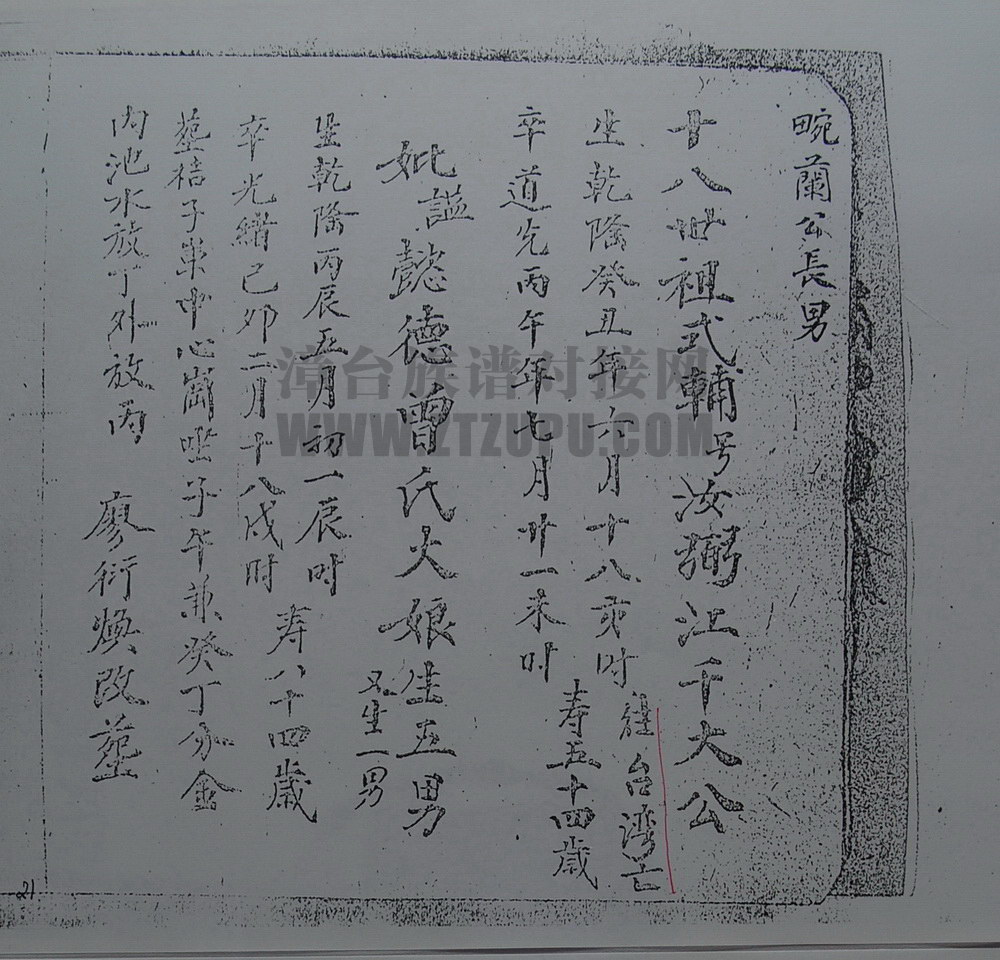 畹蘭公長男
十八世祖式輔号汝弼江千大公
生乾隆癸丑年六月十八亥时
往台湾亡
卒道光丙午年七月廿一未时
寿五十四歲
妣謚懿德曾氏大娘生五男
又生一男
生乾隆丙辰五月初一辰时
卒光緒己卯二月十八戌时
寿八十四歲
塟桔子巢中心崗坐子午兼癸丁分金
内池水放丁外放丙 廖衍煥改塟
漳台族谱对接网
WWW.ZTZUPU.COM
21